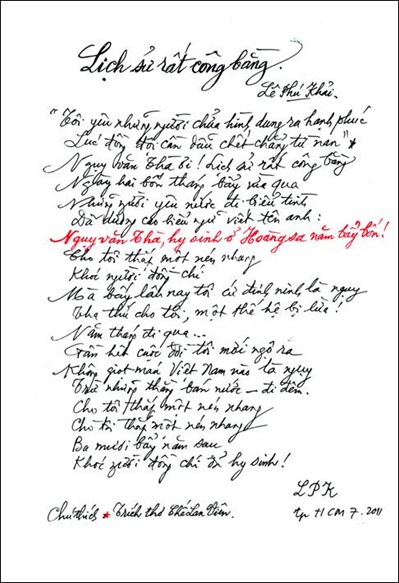 Lịch sử rất công bằng.
Lê Phú Khải.
"Tôi yêu những người chửa hình dung ra hạnh phúc
Lúc đồng đội cần đầu chết chẳng từ nan"*
Ngụy Văn Thà ơi! Lịch sử rất công bằng
Ngày hai bốn tháng bảy vừa qua
Những người yêu nước đi biểu tình
Đã dương cao biểu ngữ viết tên anh:
Ngụy Văn Thà, hy sinh ở Hoàng Sa năm bẩy bốn!
Cho tôi thắp một nén nhang
Khóc người đồng chí
Mà bấy lâu nay tôi cứ đinh ninh là ngụy
Tha thứ cho tôi, một thế hệ bị lừa!
Năm tháng đi qua...
Gần hết cuộc đời tôi mới ngộ ra
Không giọt máu Việt Nam nào là ngụy
Trừ những thằng bán nước – đi đêm.
Cho tôi thắp một nén nhang
Cho tôi thắp một nén nhang
Ba mươi bẩy năm sau
Khóc người đồng chí đã hy sinh!
LPK
tp HCM 7.2011
Chú thích * Trích thơ Chế Lan Viên.